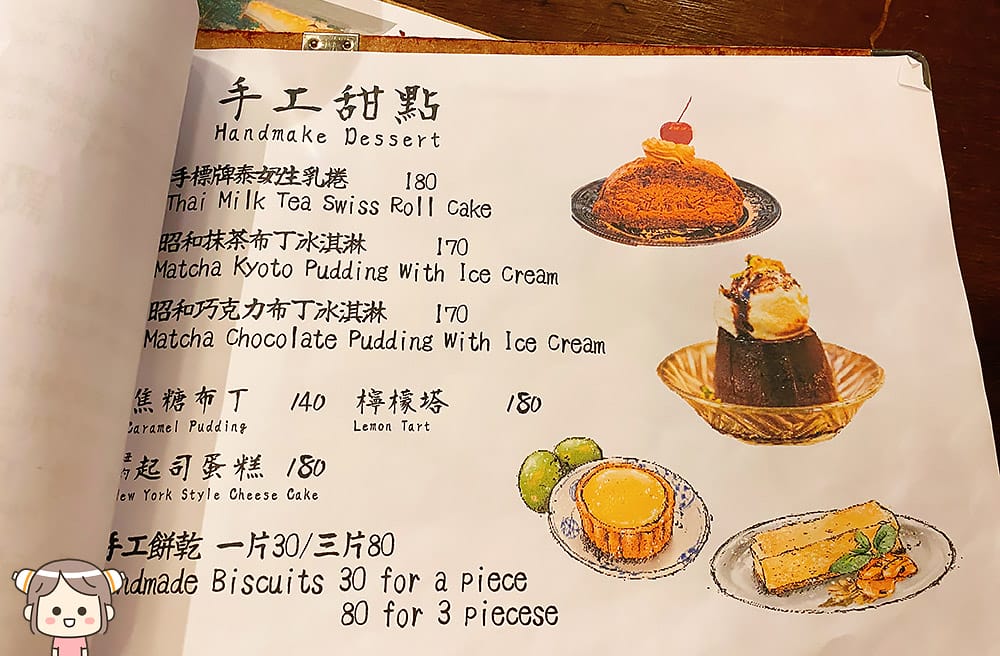 手工甜點
Handmake Dessert
手標牌泰奶生乳捲 180
Thai Milk Tea Swiss Roll Cake
昭和抹茶布丁冰淇淋 170
Matcha Kyoto Pudding With Ice Cream
昭和巧克力布丁冰淇淋 170
Matcha Chocolate Pudding With Ice Cream
焦糖布丁 140 檸檬塔 180
Caramel Pudding Lemon Tart
起司蛋糕 180
New York Style Cheese Cake
手工餅乾 一片30/三片80
ndmade Biscuits 30 for a piece
80 for 3 piecese